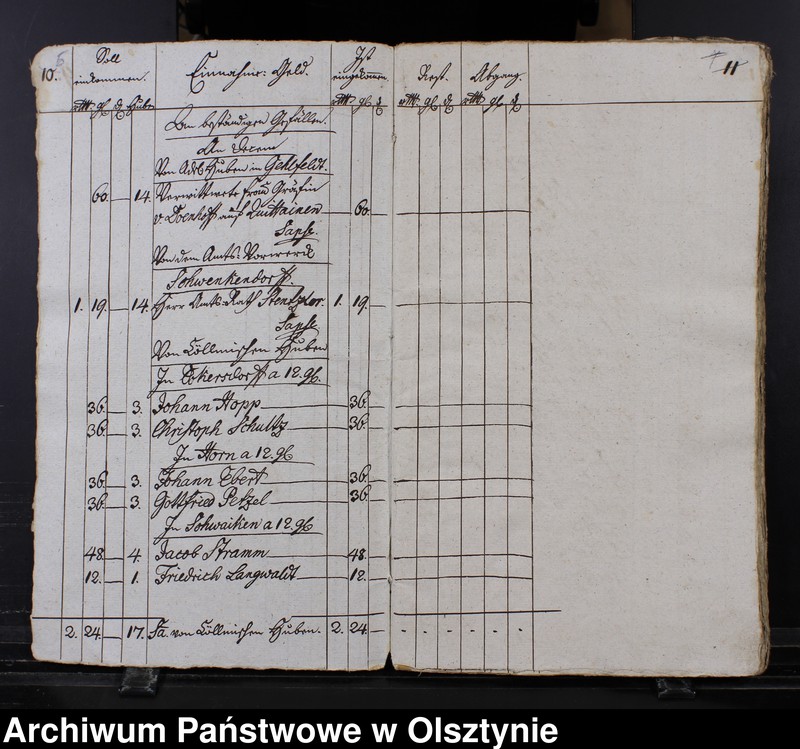 10. Soll einkommen. Einnahme: Geld. Ist eingekommen. Rest. Abgang. 11
rtl. gl. ₰ Huben rtl. gl. ₰ rtl. gl. ₰ rtl. gl. ₰
An beständigen Gefällen.
An Decem
Von Adel. Huben in Gehlfeldt.
60. — 14. Verwittwete Frau Gräfin
v Doenhoff auf Quittainen — 60. —
Von dem Amts-Vorwerck
Schwenkendorff.
1. 19. — 14. Herr Amts-Rath Stentzler. 1. 19. —
Von Cöllmischen Huben
In Eckersdorff a 12. gl.
36. — 3. Johann Hopp — 36. —
36. — 3. Christoph Schultz — 36. —
In Horn a 12. gl.
36. — 3. Johann Ebert — 36. —
36. — 3. Gottfried Petzel — 36. —
In Schwaiken a 12. gl.
48. — 4. Jacob Stramm — 48. —
12. — 1. Friedrich Langwaldt — 12. —
2. 24. — 17. Sa. von Cöllmischen Huben. 2. 24. — - - - - - -
Archiwum Państwowe w Olsztynie